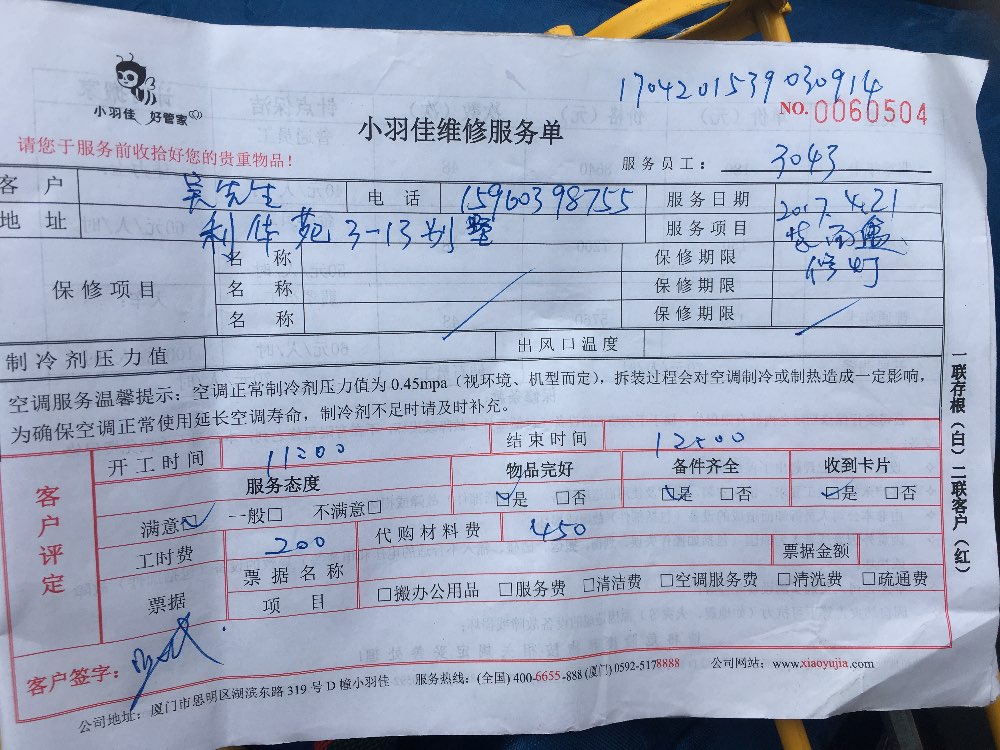 1704201539030914
小羽佳 好管家
NO.0060504
小羽佳维修服务单
请您于服务前收拾好您的贵重物品！
服务员工： 3043
客 户 吴先生 电 话 15960398755 服务日期 2017.4.21
地 址 利佳苑3-13别墅 服务项目 装雨
保修项目 名 称 保修期限 修灯
名 称 保修期限
名 称 保修期限
制冷剂压力值 出风口温度
空调服务温馨提示：空调正常制冷剂压力值为 0.45mpa（视环境、机型而定），拆装过程会对空调制冷或制热造成一定影响，
为确保空调正常使用延长空调寿命，制冷剂不足时请及时补充。
一联存根（白）二联客户（红）
客户评定
开工时间 11:00 结束时间 12:00
服务态度 物品完好 备件齐全 收到卡片
满意☑ 一般□ 不满意□ ☑是 □否 ☑是 □否 ☑是 □否
工时费 200 代购材料费 450
票据 票据名称 票据金额
项 目 □搬办公用品 □服务费 □清洁费 □空调服务费 □清洗费 □疏通费
客户签字：
公司地址：厦门市思明区湖滨东路 319 号 D 幢小羽佳 服务热线：(全国) 400-6655-888 (厦门) 0592-5178888 公司网站：www.xiaoyujia.com